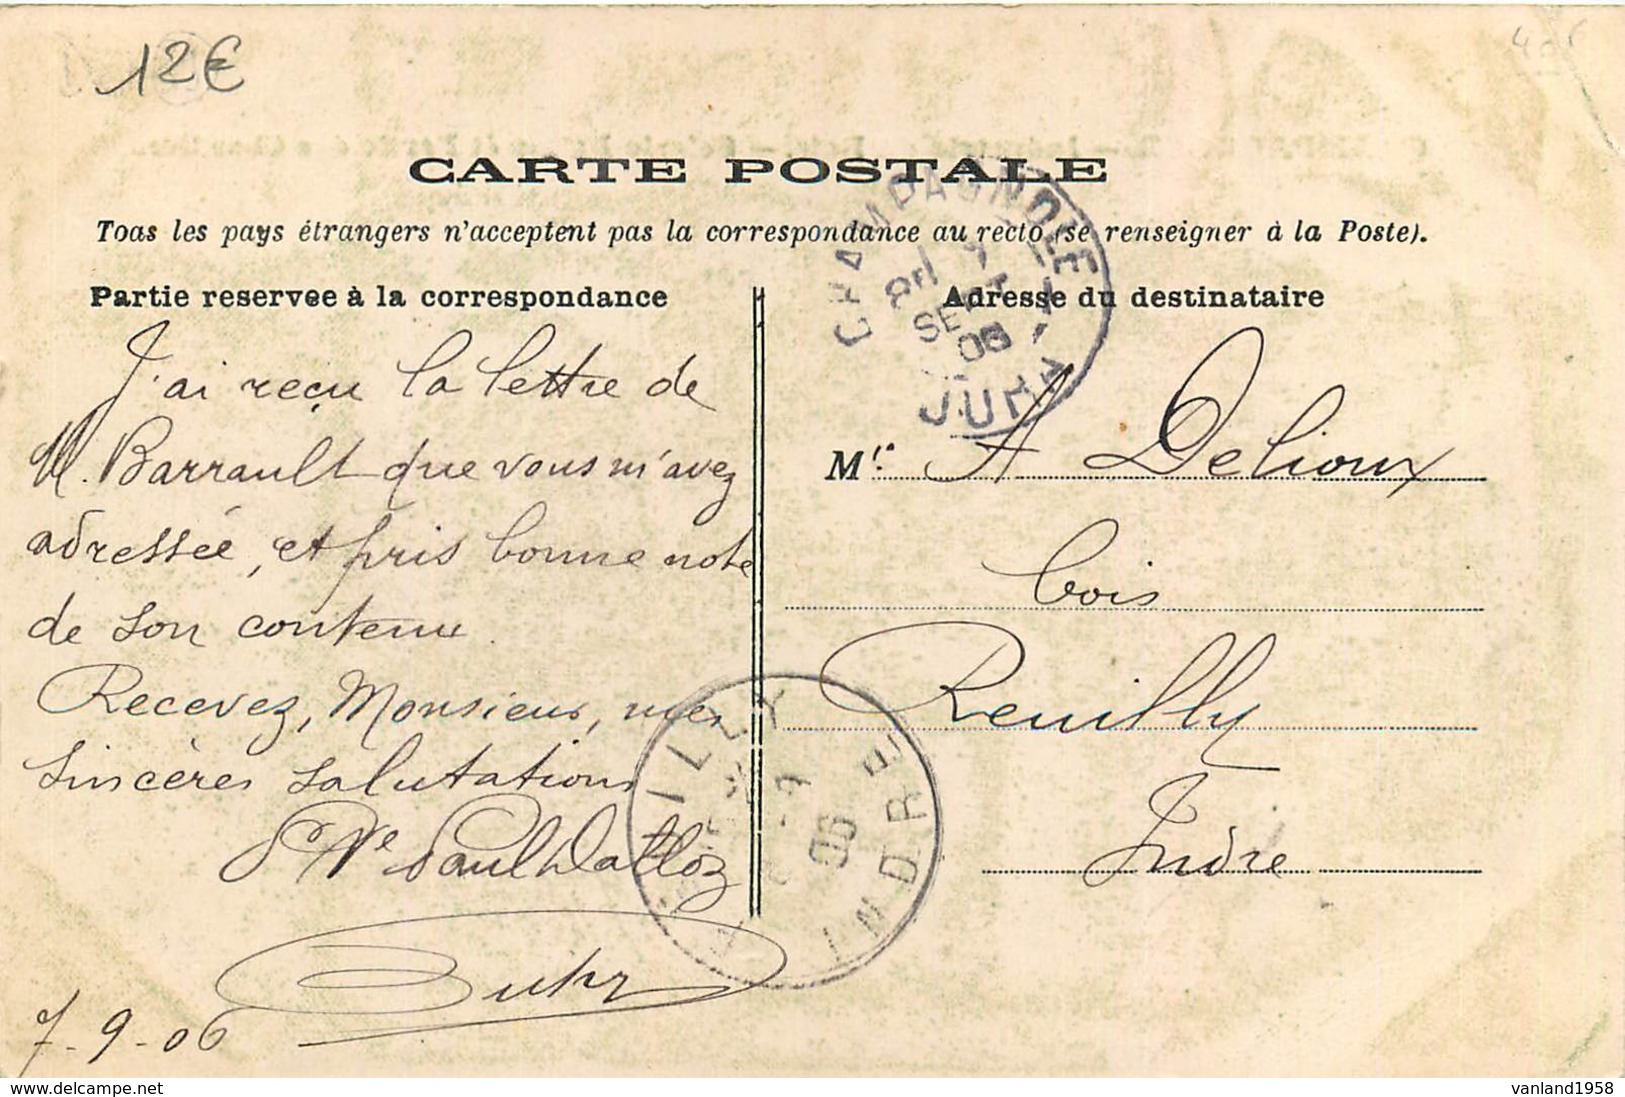 12€
CARTE POSTALE
Toas les pays étrangers n'acceptent pas la correspondance au recto (se renseigner à la Poste).
Partie reservee à la correspondance
J'ai reçu la lettre de
M. Barrault que vous m'avez
adressée, et pris bonne note
de son contenu.
Recevez, Monsieur, mes
sincères salutations
Paul Dalloz
7-9-06
Adresse du destinataire
Mr. A Delioux
bois
Reuilly
Indre
CHAMPAGNOLE
SEPT
06
JURA
REUILLY
06
INDRE
delcampe.net
vanland1958